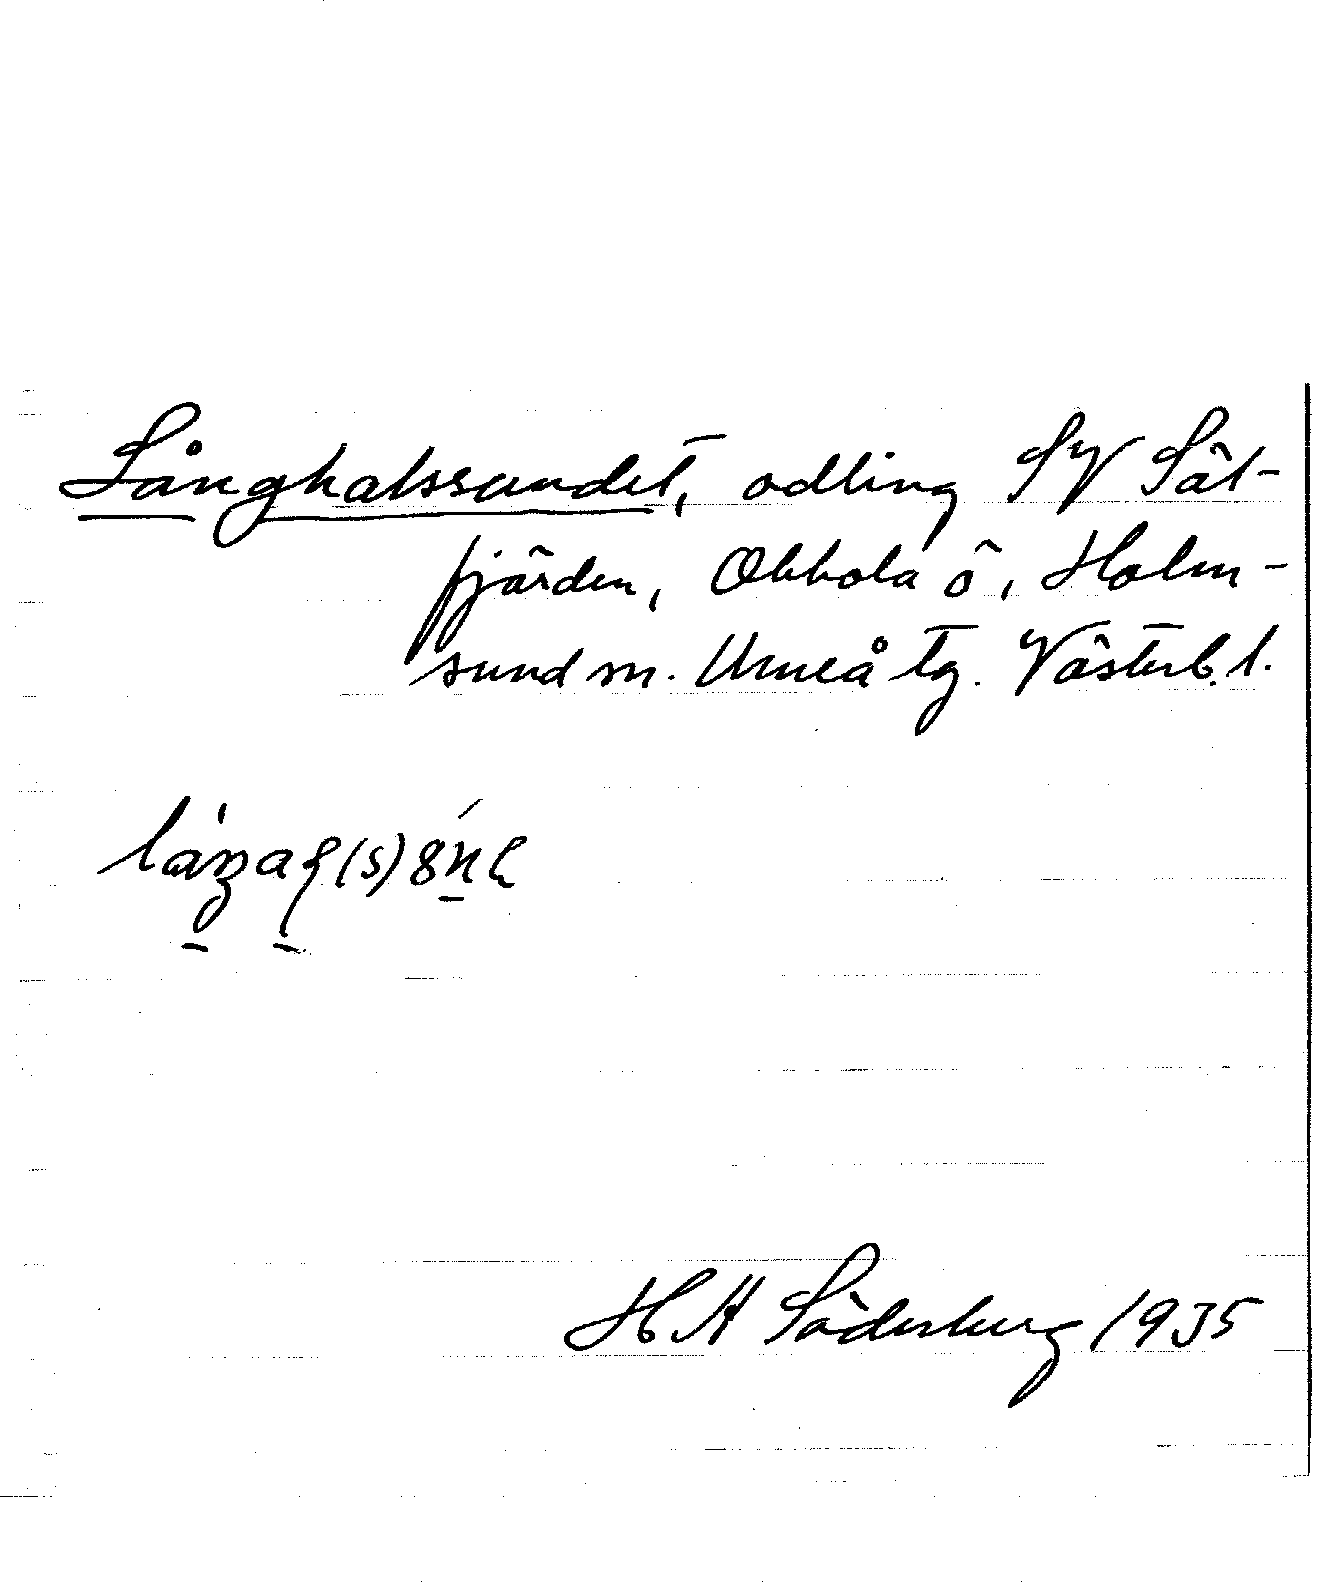 Långhalssundet, odling SV Sät-
fjärden, Obbola ö, Holm-
sund sn. Umeå tg. Västerb. l.
H H Söderberg 1935